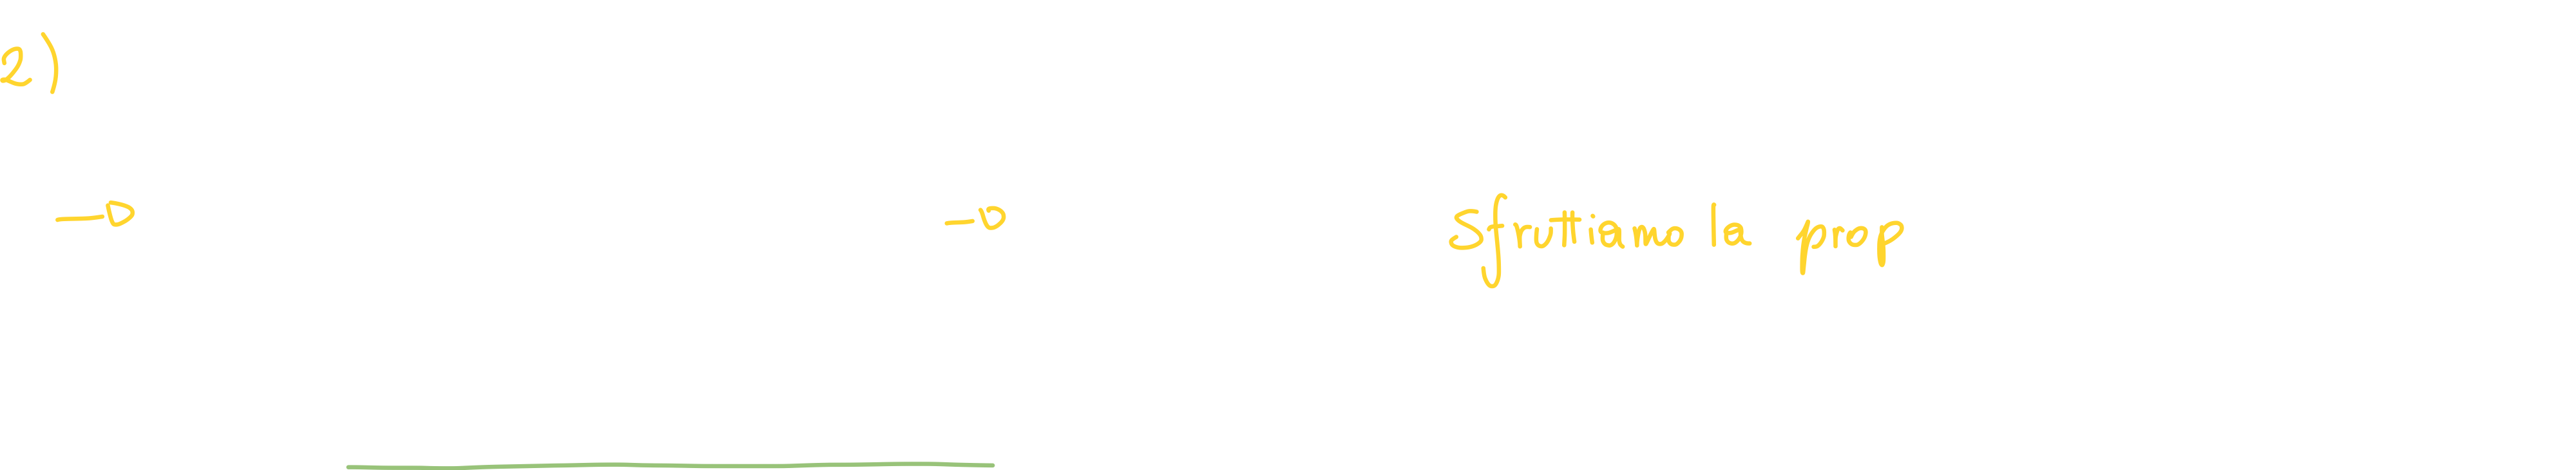 2)
→ → Sfruttiamo la prop